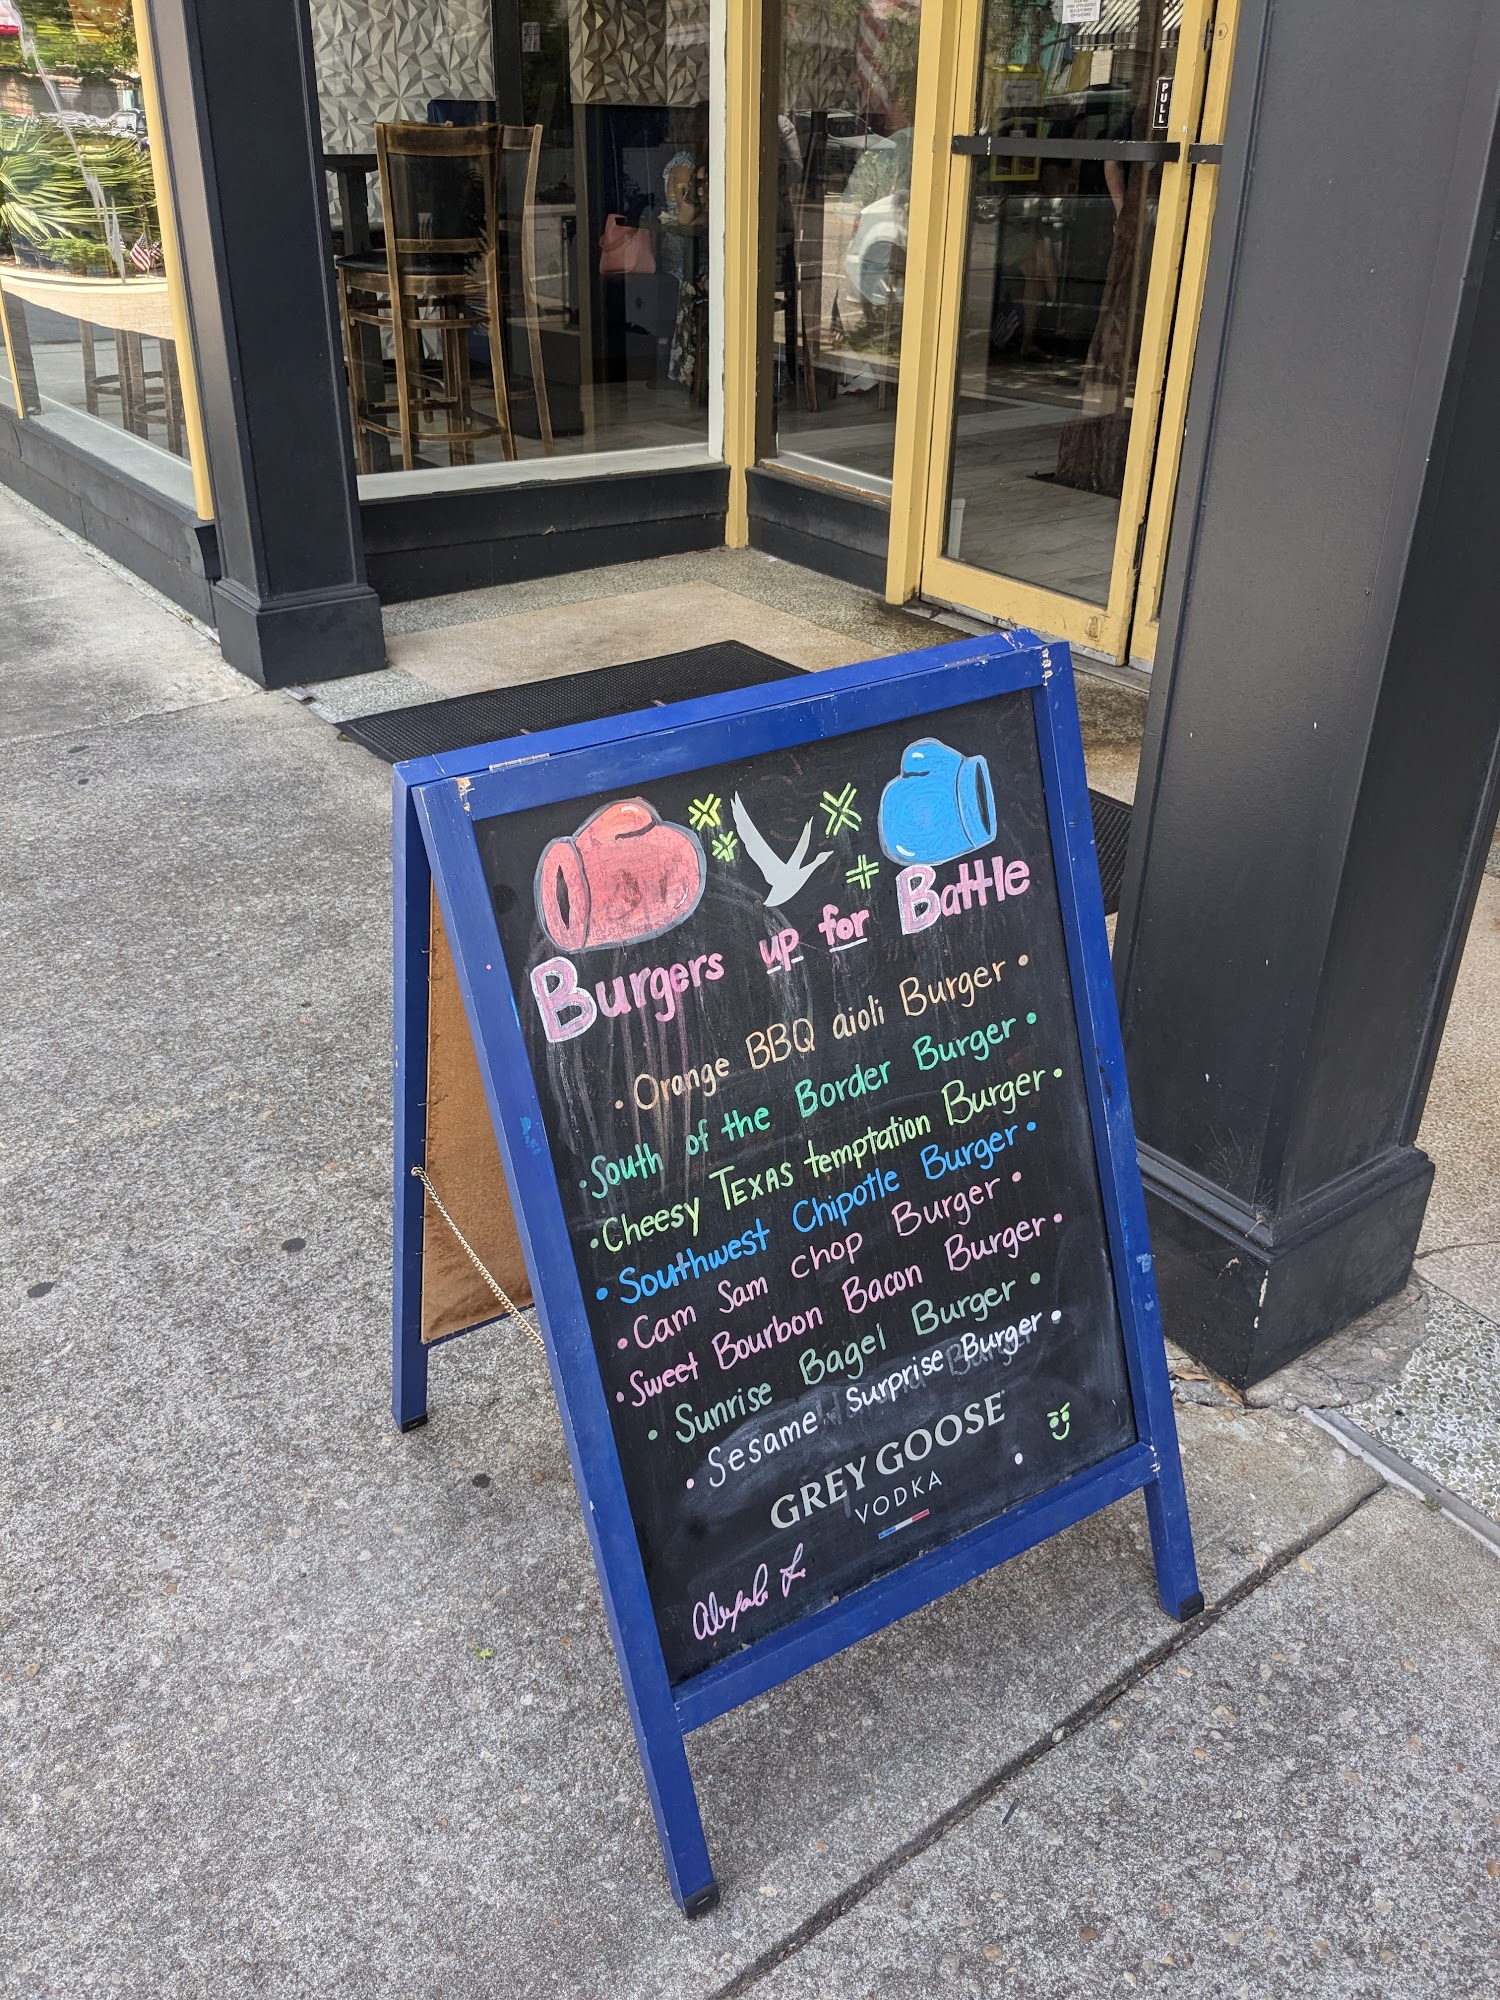 PULL
Burgers up for Battle
• Orange BBQ aioli Burger •
• South of the Border Burger •
• Cheesy TEXAS temptation Burger •
• Southwest Chipotle Burger •
• Cam Sam chop Burger •
• Sweet Bourbon Bacon Burger •
• Sunrise Bagel Burger •
• Sesame Surprise Burger •
GREY GOOSE
VODKA